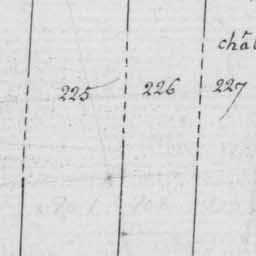 chât
225 226 227